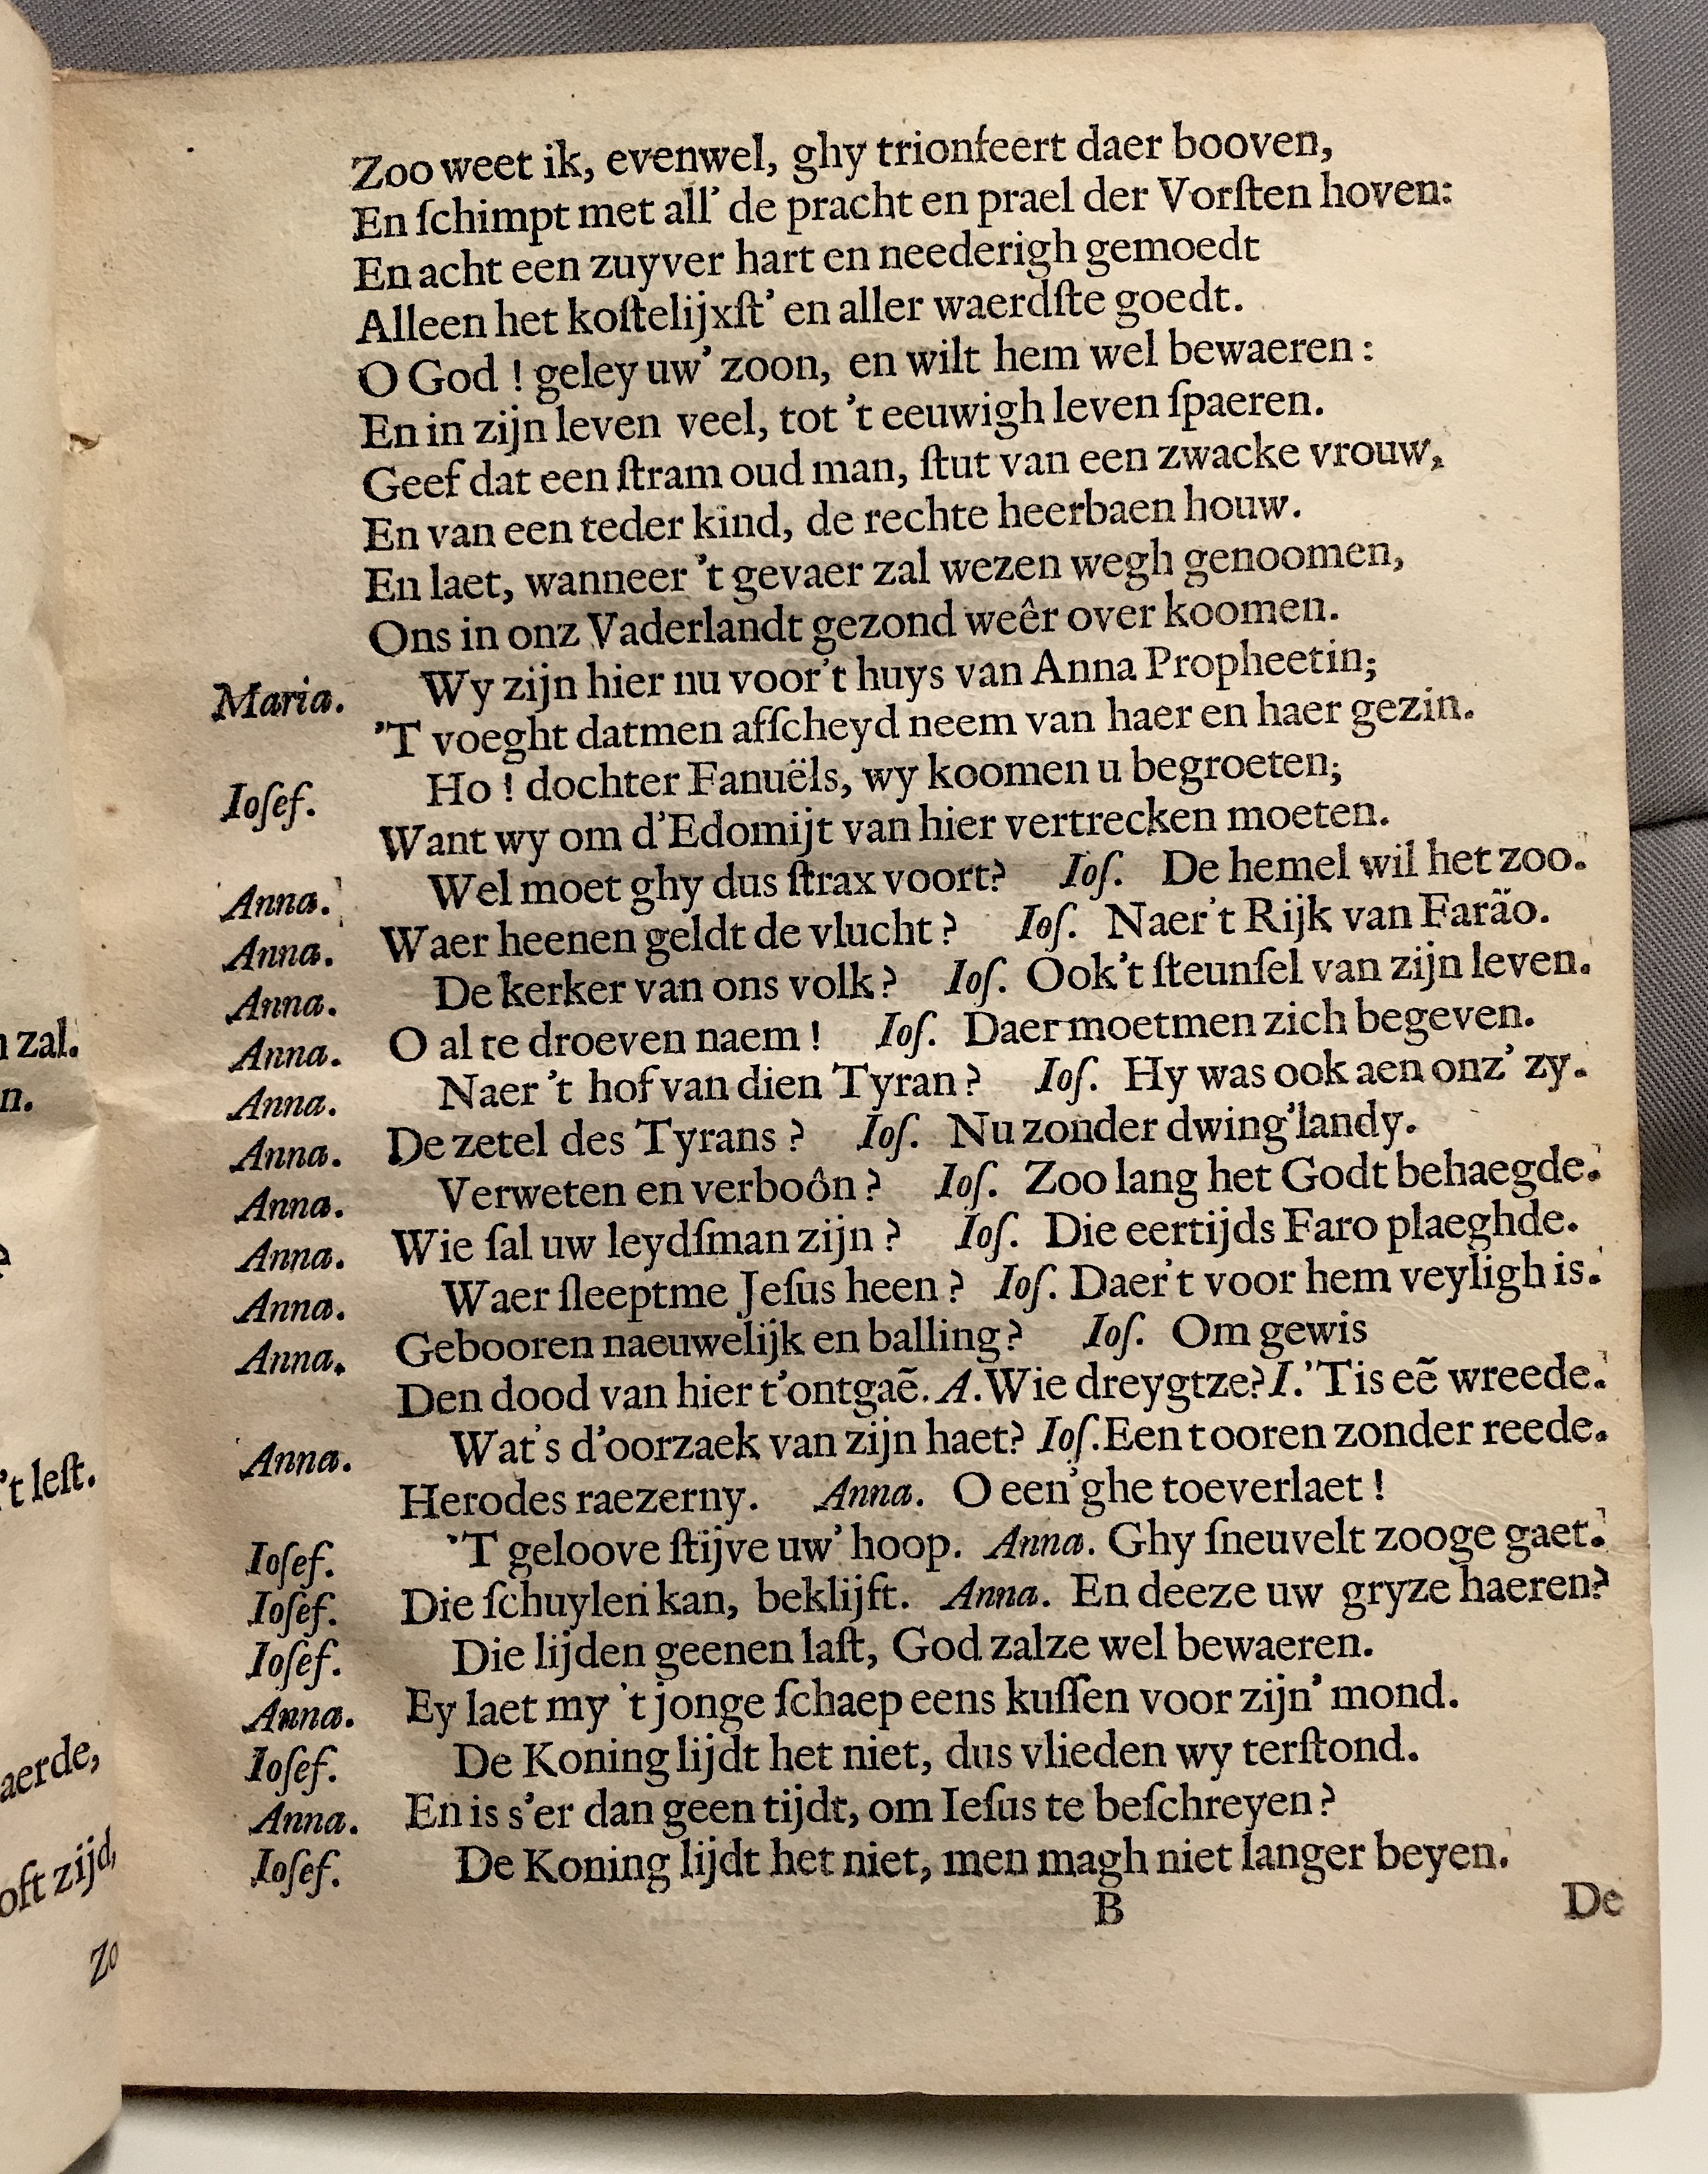 Zoo weet ik, evenwel, ghy trionfeert daer booven,
En ſchimpt met all' de pracht en prael der Vorſten hoven:
En acht een zuyver hart en neederigh gemoedt
Alleen het koſtelijxſt' en aller waerdſte goedt.
O God ! geley uw' zoon, en wilt hem wel bewaeren :
En in zijn leven veel, tot 't eeuwigh leven ſpaeren.
Geef dat een ſtram oud man, ſtut van een zwacke vrouw,
En van een teder kind, de rechte heerbaen houw.
En laet, wanneer 't gevaer zal wezen wegh genoomen,
Ons in onz Vaderlandt gezond weêr over koomen.
Maria. Wy zijn hier nu voor't huys van Anna Propheetin;
'T voeght datmen afſcheyd neem van haer en haer gezin.
Ioſef. Ho ! dochter Fanuëls, wy koomen u begroeten;
Want wy om d'Edomijt van hier vertrecken moeten.
Anna. Wel moet ghy dus ſtrax voort? Ioſ. De hemel wil het zoo.
Anna. Waer heenen geldt de vlucht ? Ioſ. Naer't Rijk van Faräo.
Anna. De kerker van ons volk ? Ioſ. Ook't ſteunſel van zijn leven.
Anna. O al te droeven naem ! Ioſ. Daer moetmen zich begeven.
Anna. Naer 't hof van dien Tyran ? Ioſ. Hy was ook aen onz' zy.
Anna. De zetel des Tyrans ? Ioſ. Nu zonder dwing'landy.
Anna. Verweten en verboôn ? Ioſ. Zoo lang het Godt behaegde.
Anna. Wie ſal uw leydſman zijn ? Ioſ. Die eertijds Faro plaeghde.
Anna. Waer ſleeptme Jeſus heen ? Ioſ. Daer't voor hem veyligh is.
Anna. Gebooren naeuwelijk en balling? Ioſ. Om gewis
Den dood van hier t'ontgaẽ. A. Wie dreygtze? I. 'Tis eẽ wreede.
Anna. Wat's d'oorzaek van zijn haet? Ioſ. Een tooren zonder reede.
Herodes raezerny. Anna. O een'ghe toeverlaet !
Ioſef. 'T geloove ſtijve uw' hoop. Anna. Ghy ſneuvelt zooge gaet.
Ioſef. Die ſchuylen kan, beklijft. Anna. En deeze uw gryze haeren?
Ioſef. Die lijden geenen laſt, God zalze wel bewaeren.
Anna. Ey laet my 't jonge ſchaep eens kuſſen voor zijn' mond.
Ioſef. De Koning lijdt het niet, dus vlieden wy terſtond.
Anna. En is s'er dan geen tijdt, om Ieſus te beſchreyen ?
Ioſef. De Koning lijdt het niet, men magh niet langer beyen.
B De
zal.
n.
't leſt.
aerde,
oft zijd,
Zo